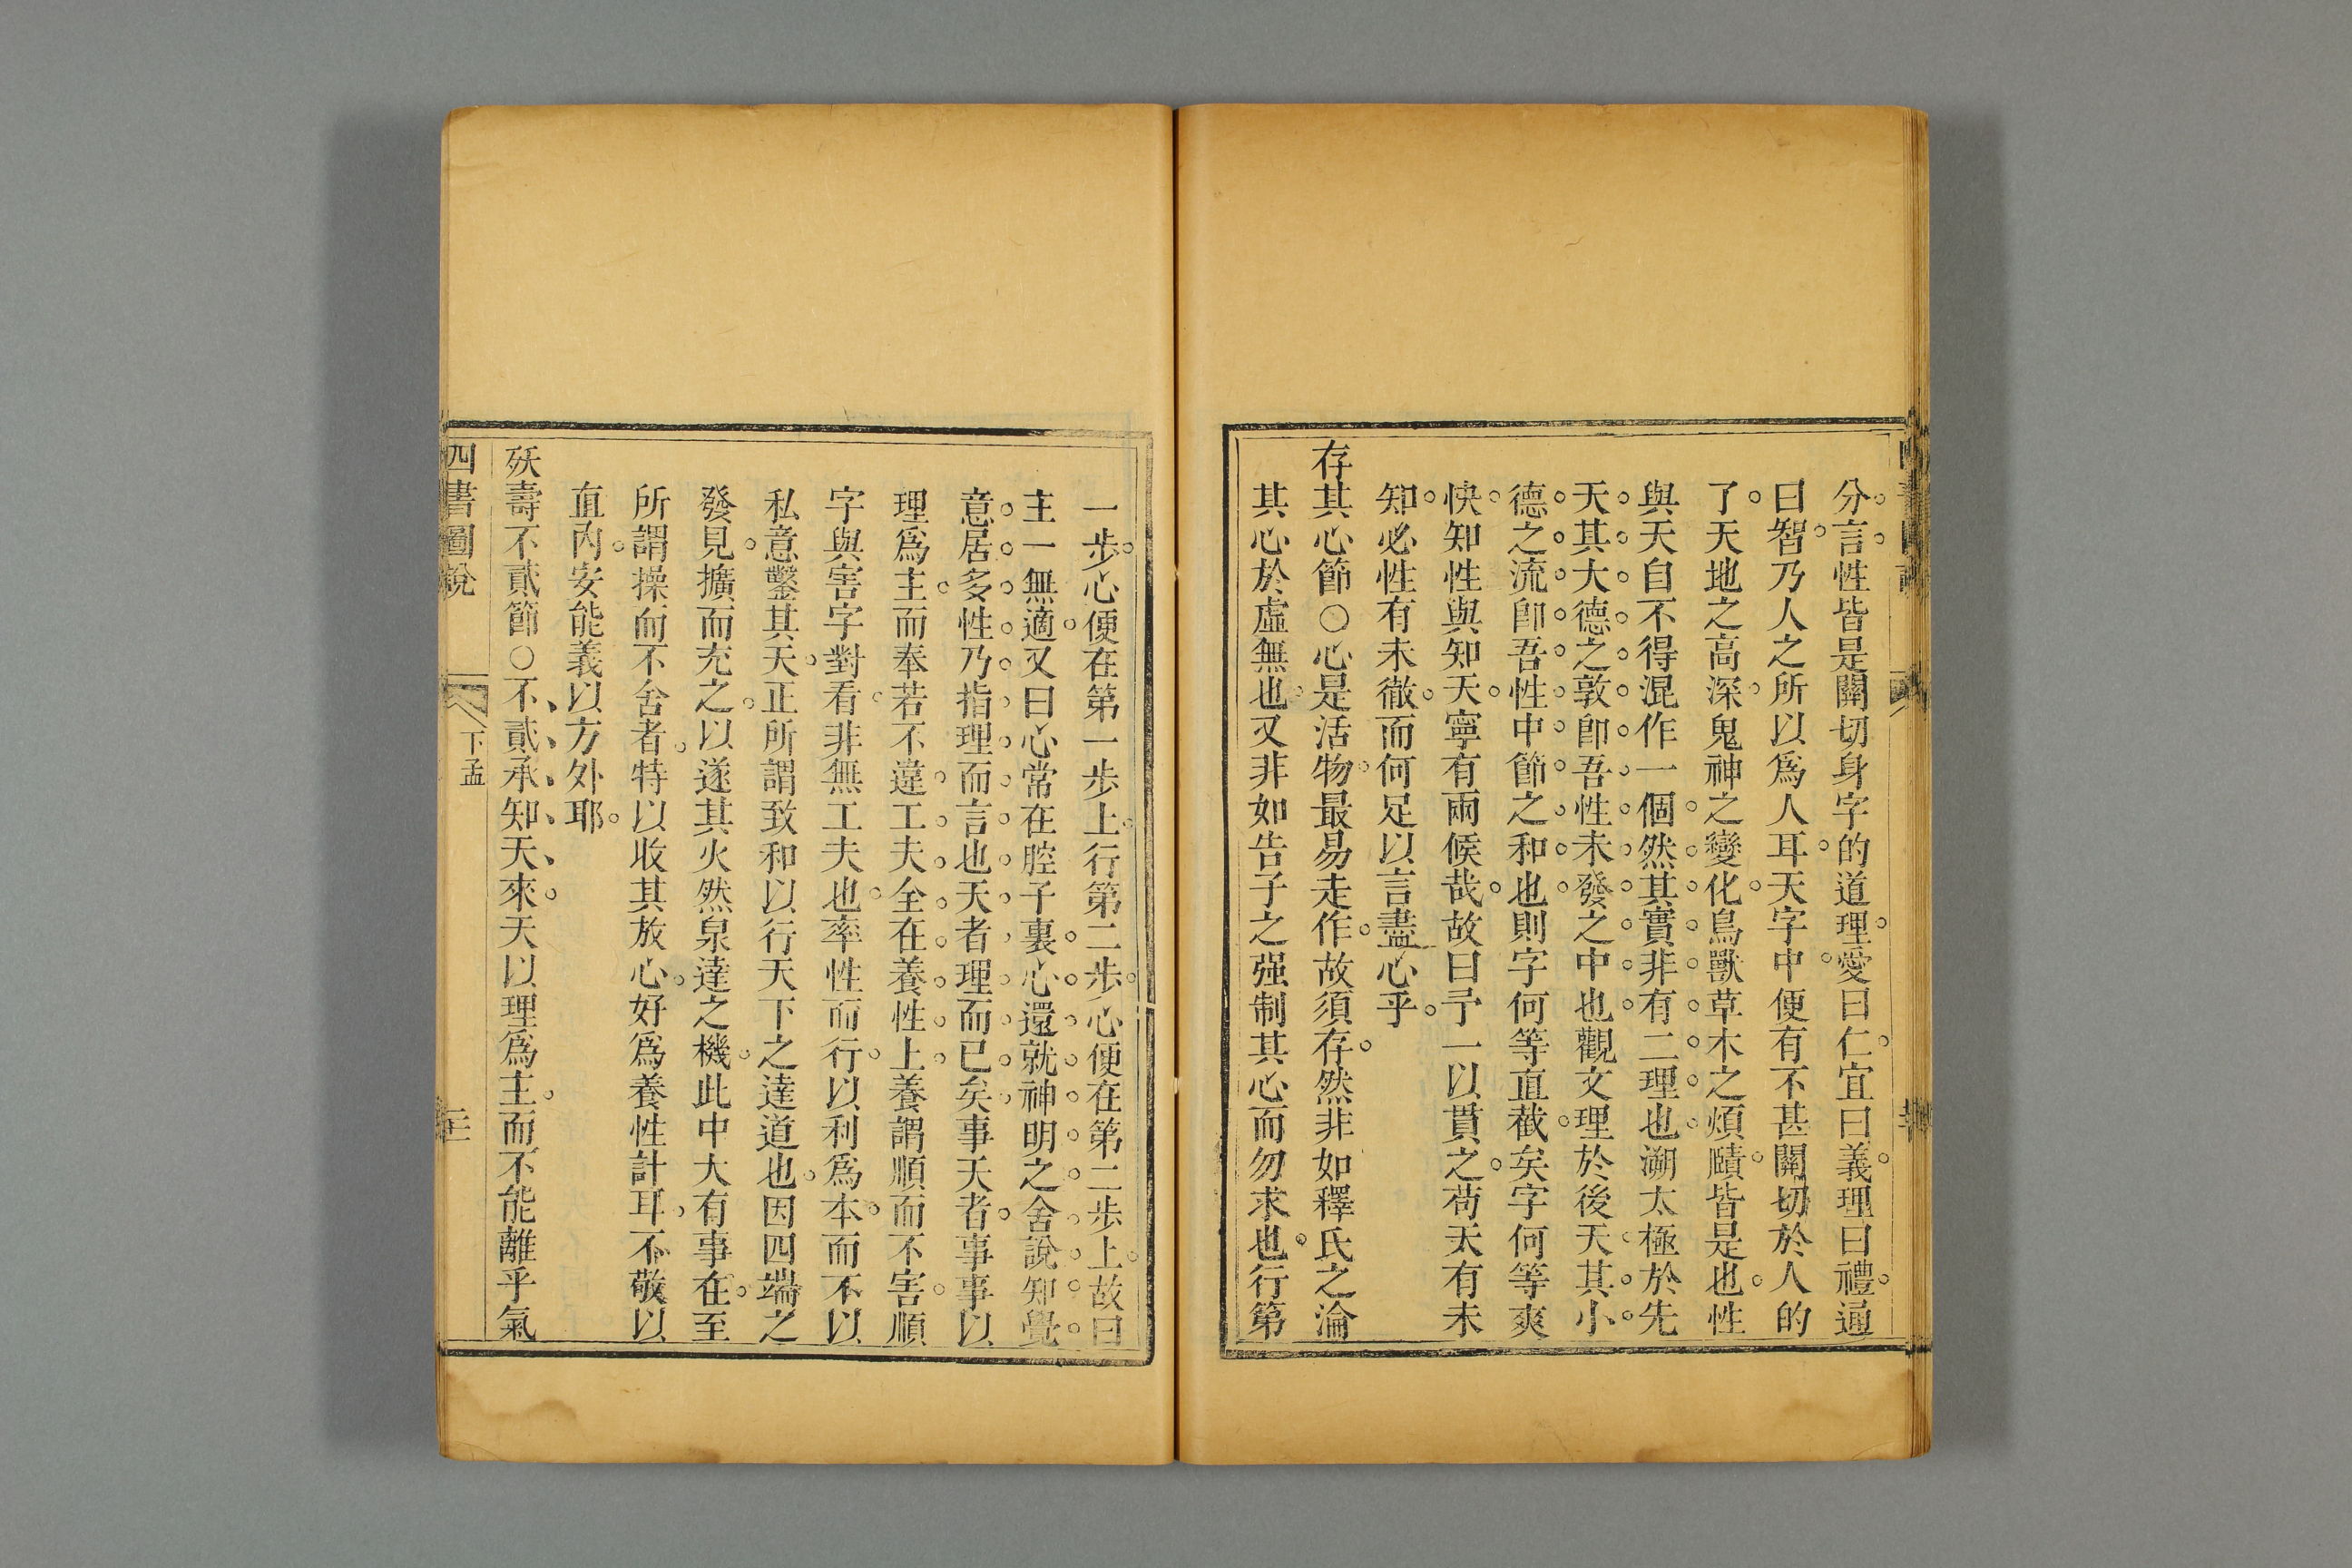 分言性皆是關切身字的道理愛曰仁宜曰義理曰禮通
曰智乃人之所以爲人耳天字中便有不甚關切於人的
了天地之高深鬼神之變化鳥獸草木之煩賾皆是也性
與天自不得混作一個然其實非有二理也溯太極於先
天其大德之敦卽吾性未發之中也觀文理於後天其小
德之流卽吾性中節之和也則字何等直截矣字何等爽
快知性與知天寧有兩候哉故曰予一以貫之苟天有未
知必性有未徹而何足以言盡心乎
存其心節○心是活物最易走作故須存然非如釋氏之淪
其心於虛無也又非如告子之强制其心而勿求也行第
一步心便在第一步上行第二步心便在第二步上故曰
主一無適又曰心常在腔子裏心還就神明之舍說知覺
意居多性乃指理而言也天者理而已矣事天者事事以
理爲主而奉若不違工夫全在養性上養謂順而不害順
字與害字對看非無工夫也率性而行以利爲本而不以
私意鑿其天正所謂致和以行天下之達道也因四端之
發見擴而充之以遂其火然泉達之機此中大有事在至
所謂操而不舍者特以收其放心好爲養性計耳不敬以
直內安能義以方外耶
殀壽不貳節○不貳承知天來天以理爲主而不能離乎氣
四書圖說
下孟